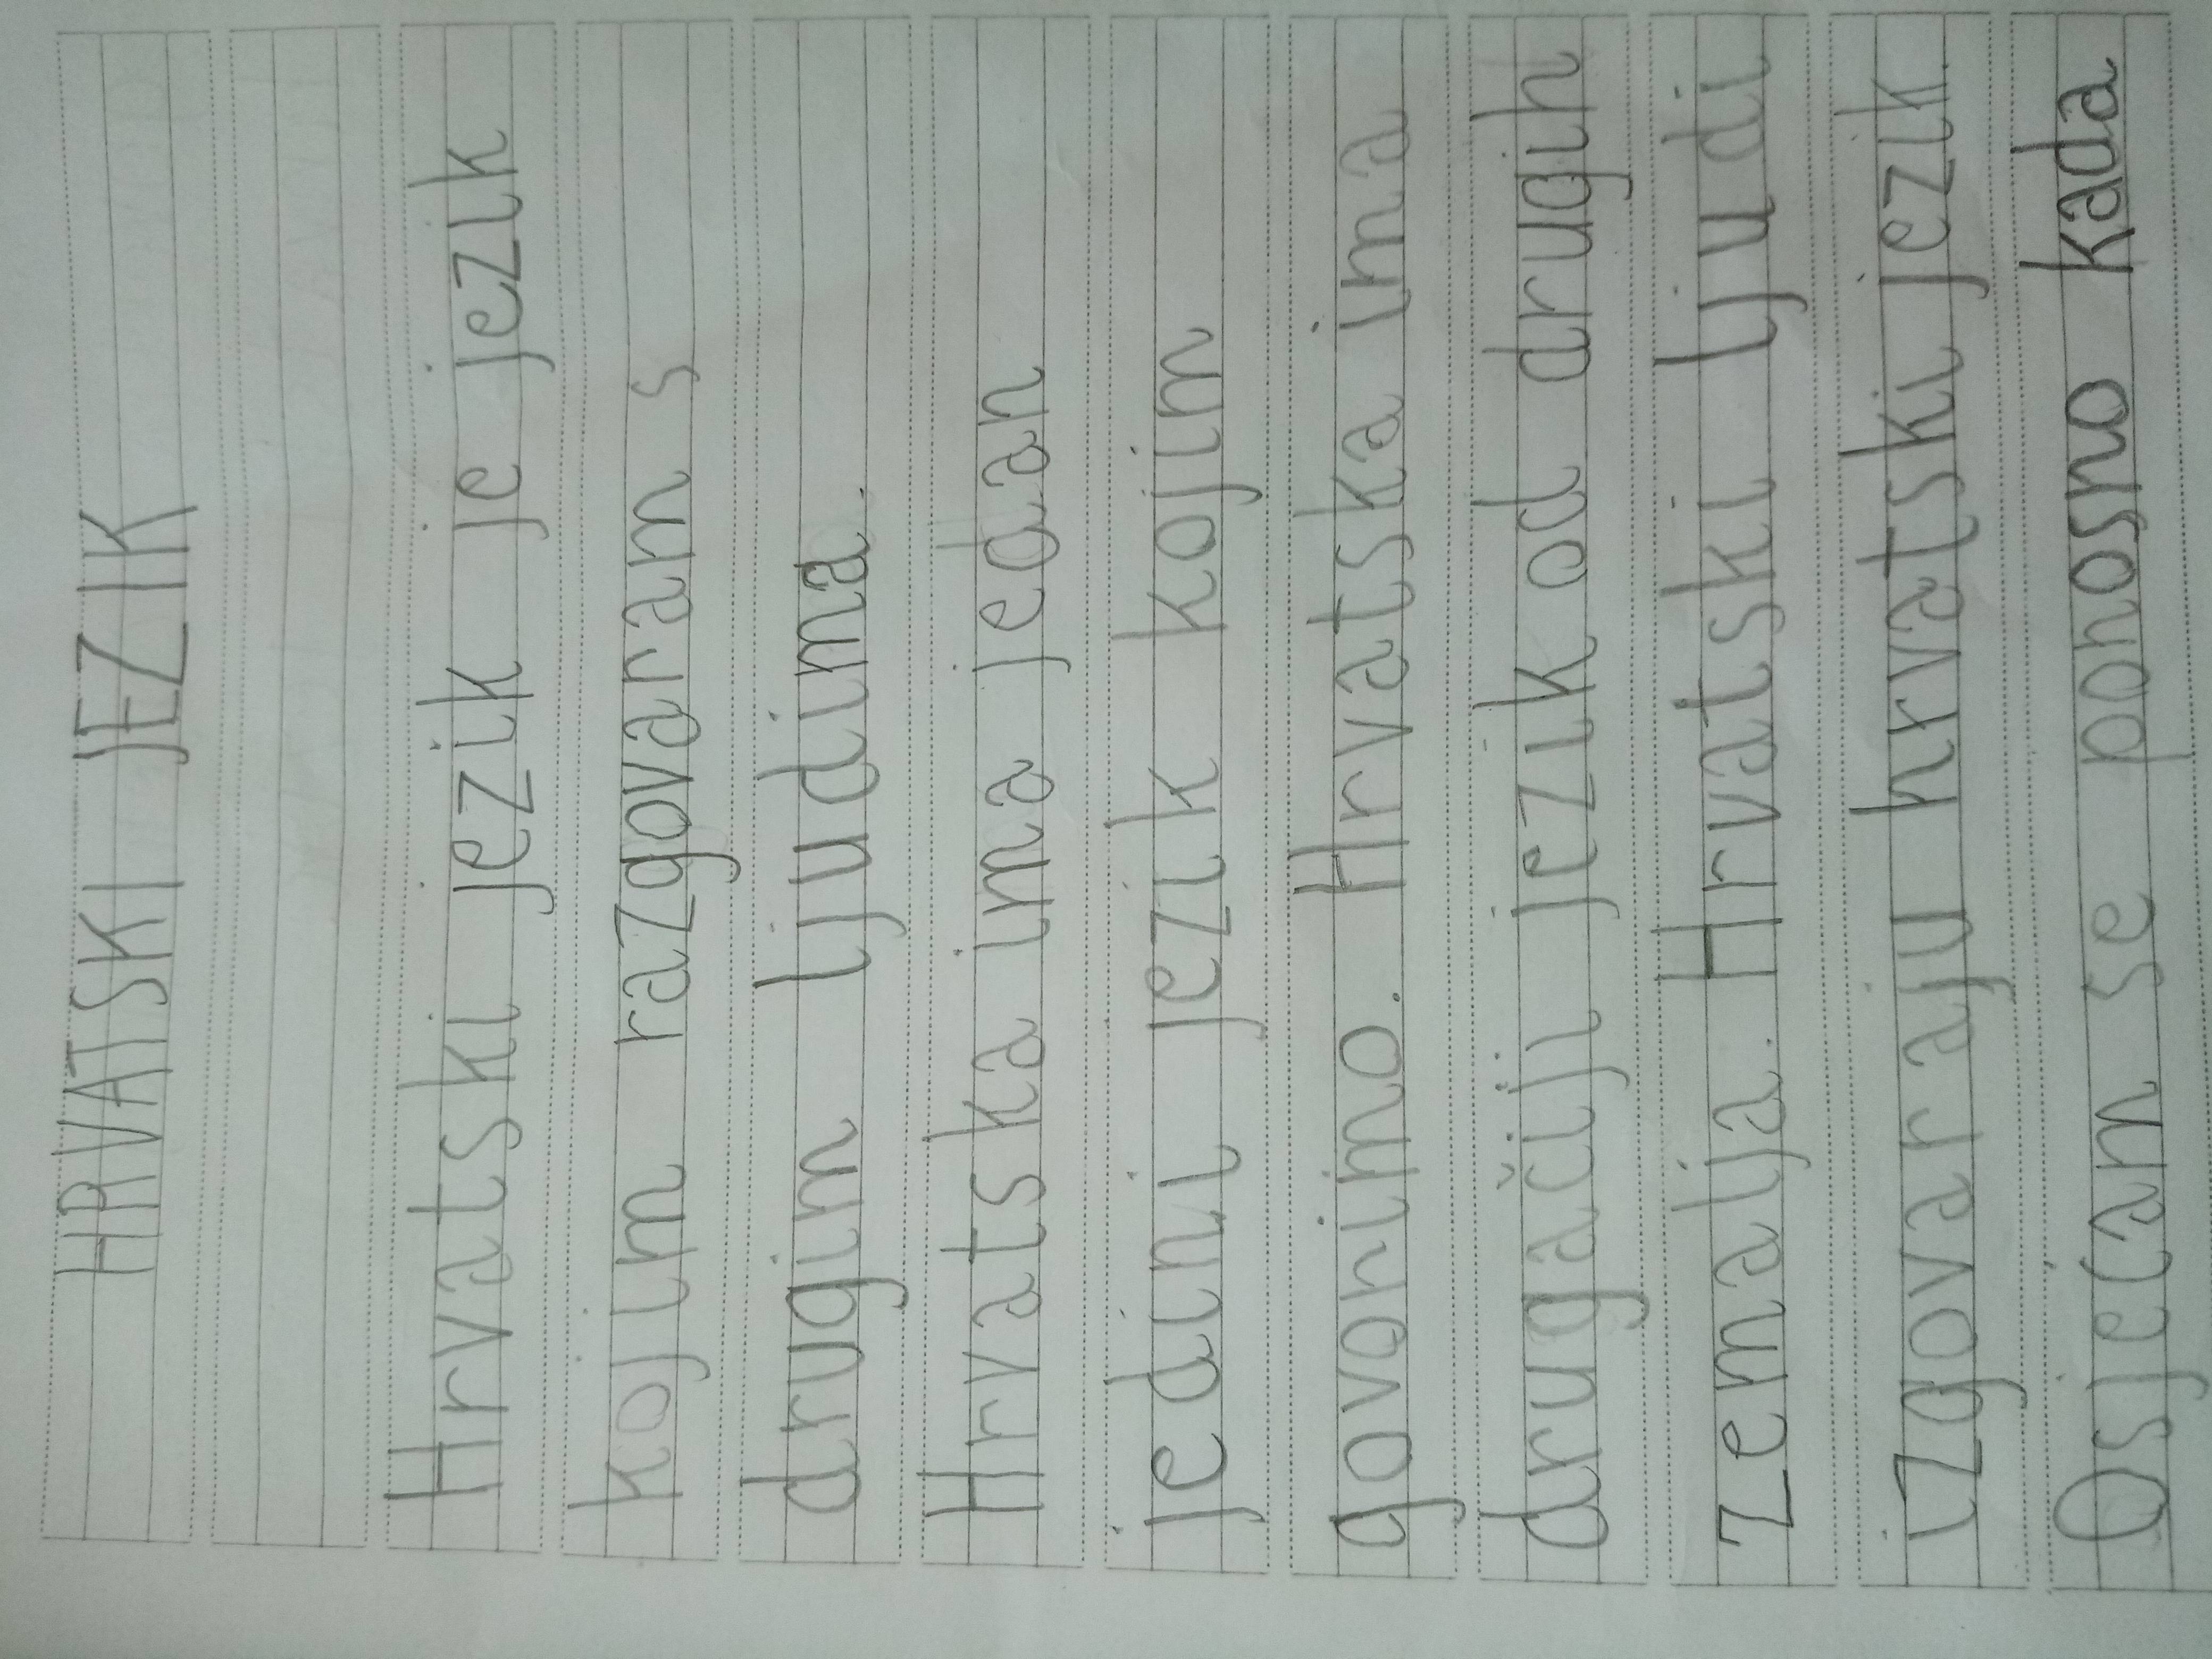 HRVATSKI JEZIK
Hrvatski jezik je jezik
kojim razgovaram s
drugim ljudima.
Hrvatska ima jedan
jedini jezik kojim
govorimo. Hrvatska ima
drugačiji jezik od drugih
zemalja. Hrvatski ljudi
izgovaraju hrvatski jezik.
Osjećam se ponosno kada